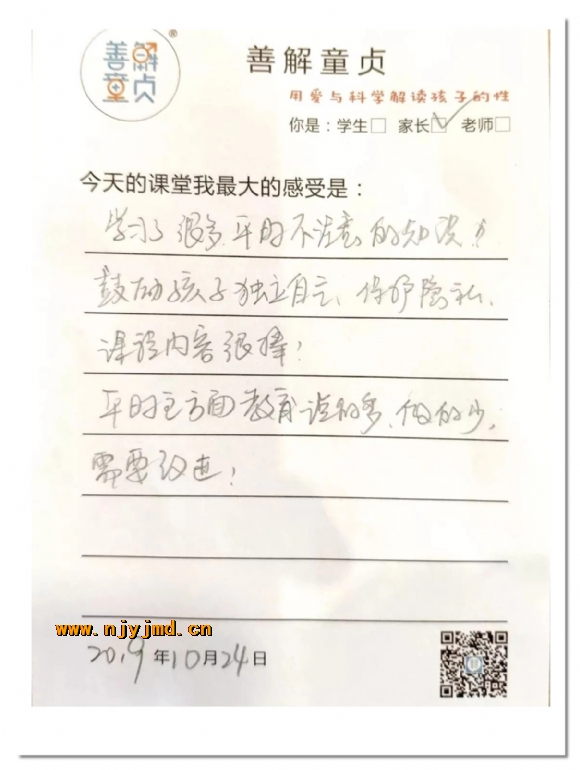 善解童贞®
善解童贞
用爱与科学解读孩子的性
你是：学生□ 家长☑ 老师□
今天的课堂我最大的感受是：
学习了很多平时不注意的知识！
鼓励孩子独立自主、保护隐私、
课程内容很棒！
平时这方面教育说的多、做的少，
需要改进！
www.njyjmd.cn
2019年10月24日